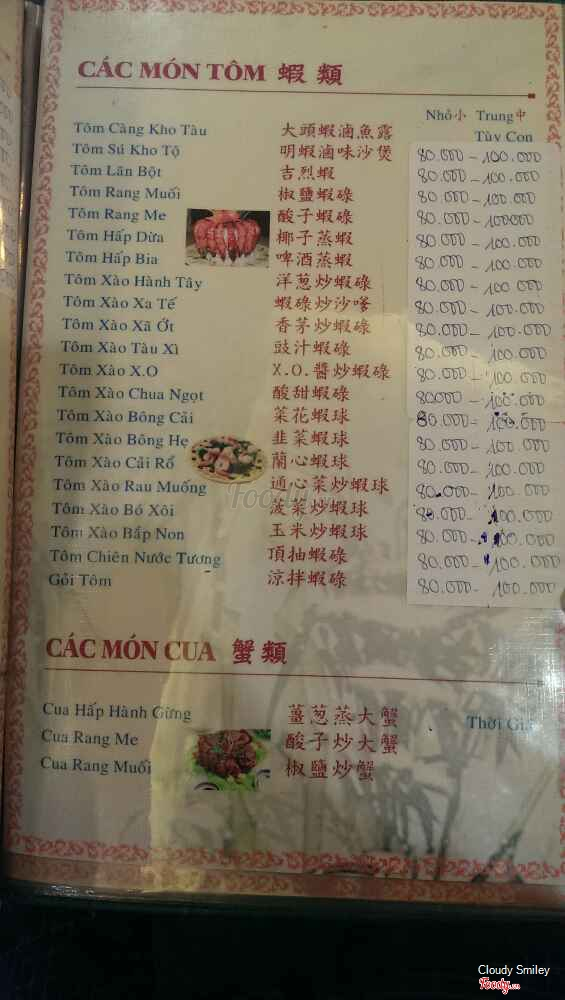 CÁC MÓN TÔM 蝦 類
Nhỏ小 Trung中
Tôm Càng Kho Tàu 大頭蝦滷魚露 Tùy Con
Tôm Sú Kho Tộ 明蝦滷味沙煲 80.000 - 100.000
Tôm Lăn Bột 吉烈蝦 80.000 - 100.000
Tôm Rang Muối 椒鹽蝦碌 80.000 - 100.000
Tôm Rang Me 酸子蝦碌 80.000 - 100000
Tôm Hấp Dừa 椰子蒸蝦 80.000 - 100.000
Tôm Hấp Bia 啤酒蒸蝦 80.000 - 100.000
Tôm Xào Hành Tây 洋葱炒蝦碌 80.000 - 100.000
Tôm Xào Xa Tế 蝦碌炒沙嗲 80.000 - 100.000
Tôm Xào Xã Ớt 香茅炒蝦碌 80.000 - 100.000
Tôm Xào Tàu Xì 豉汁蝦碌 80.000 - 100.000
Tôm Xào X.O X.O.醬炒蝦碌 80.000 - 100.000
Tôm Xào Chua Ngọt 酸甜蝦碌 80000 - 100.000
Tôm Xào Bông Cải 菜花蝦球 80.000 - 100.000
Tôm Xào Bông Hẹ 韭菜蝦球 80.000 - 100.000
Tôm Xào Cải Rổ 蘭心蝦球 80.000 - 100.000
Tôm Xào Rau Muống 通心菜炒蝦球 80.000 - 100.000
Tôm Xào Bó Xôi 菠菜炒蝦球 80.000 - 100.000
Tôm Xào Bắp Non 玉米炒蝦球 80.000 - 100.000
Tôm Chiên Nước Tương 頂抽蝦碌 80.000 - 100.000
Gỏi Tôm 涼拌蝦碌 80.000 - 100.000
CÁC MÓN CUA 蟹類
Cua Hấp Hành Gừng 薑葱蒸大蟹 Thời Giá
Cua Rang Me 酸子炒大蟹
Cua Rang Muối 椒鹽炒蟹
Foody
Cloudy Smiley
Foody.vn